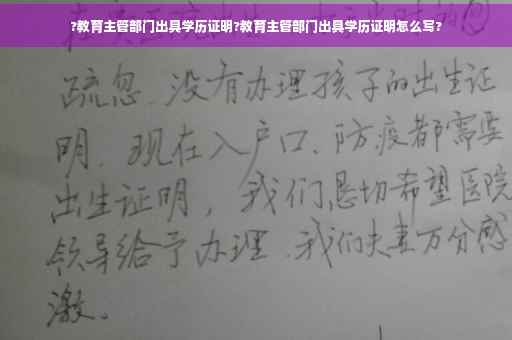 ?教育主管部门出具学历证明?教育主管部门出具学历证明怎么写?
疏忽.没有办理孩子的出生证
明.现在入户口、防疫都需要
出生证明，我们恳切希望医院
领导给予办理.我们夫妻万分感
激。